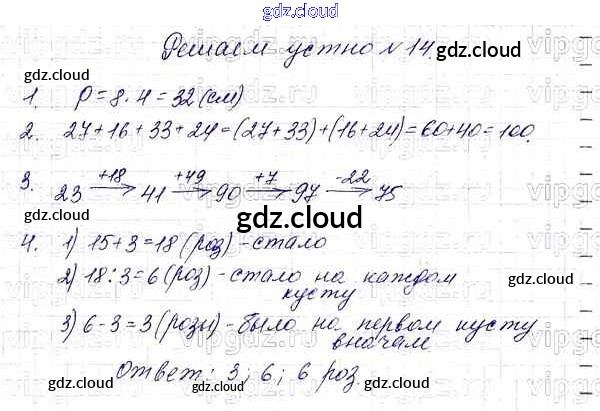 gdz.cloud
gdz.cloud
Решаем устно № 14.
gdz.cloud
gdz.cloud
1. P = 8 · 4 = 32 (см)
gdz.cloud
2. 27 + 16 + 33 + 24 = (27 + 33) + (16 + 24) = 60 + 40 = 100.
3. 23 +18→ 41 +49→ 90 +7→ 97 -22→ 75
gdz.cloud
4. 1) 15 + 3 = 18 (роз) - стало
gdz.cloud
2) 18 : 3 = 6 (роз) - стало на каждом
кусту
gdz.cloud
3) 6 - 3 = 3 (розы) - было на первом кусту
вначале
Ответ: 3; 6; 6 роз.
gdz.cloud
gdz.cloud
gdz.cloud
vipgdz.ru